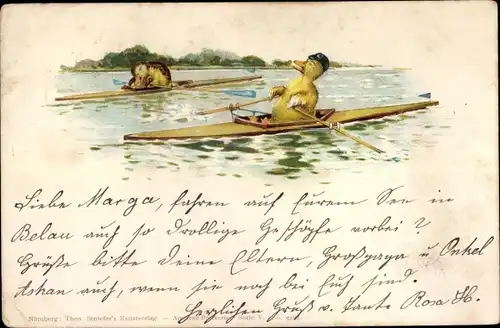 Liebe Marga, fahren auf Eurem See in
Belau auch so drollige Geschöpfe vorbei?
Grüße bitte Deine Eltern, Großpapa u Onkel
Askan auch, wenn sie noch bei Euch sind.
Herzlichen Gruß v. Tante Rosa H.
Nürnberg: Theo. Stroefer's Kunstverlag. Serie V.